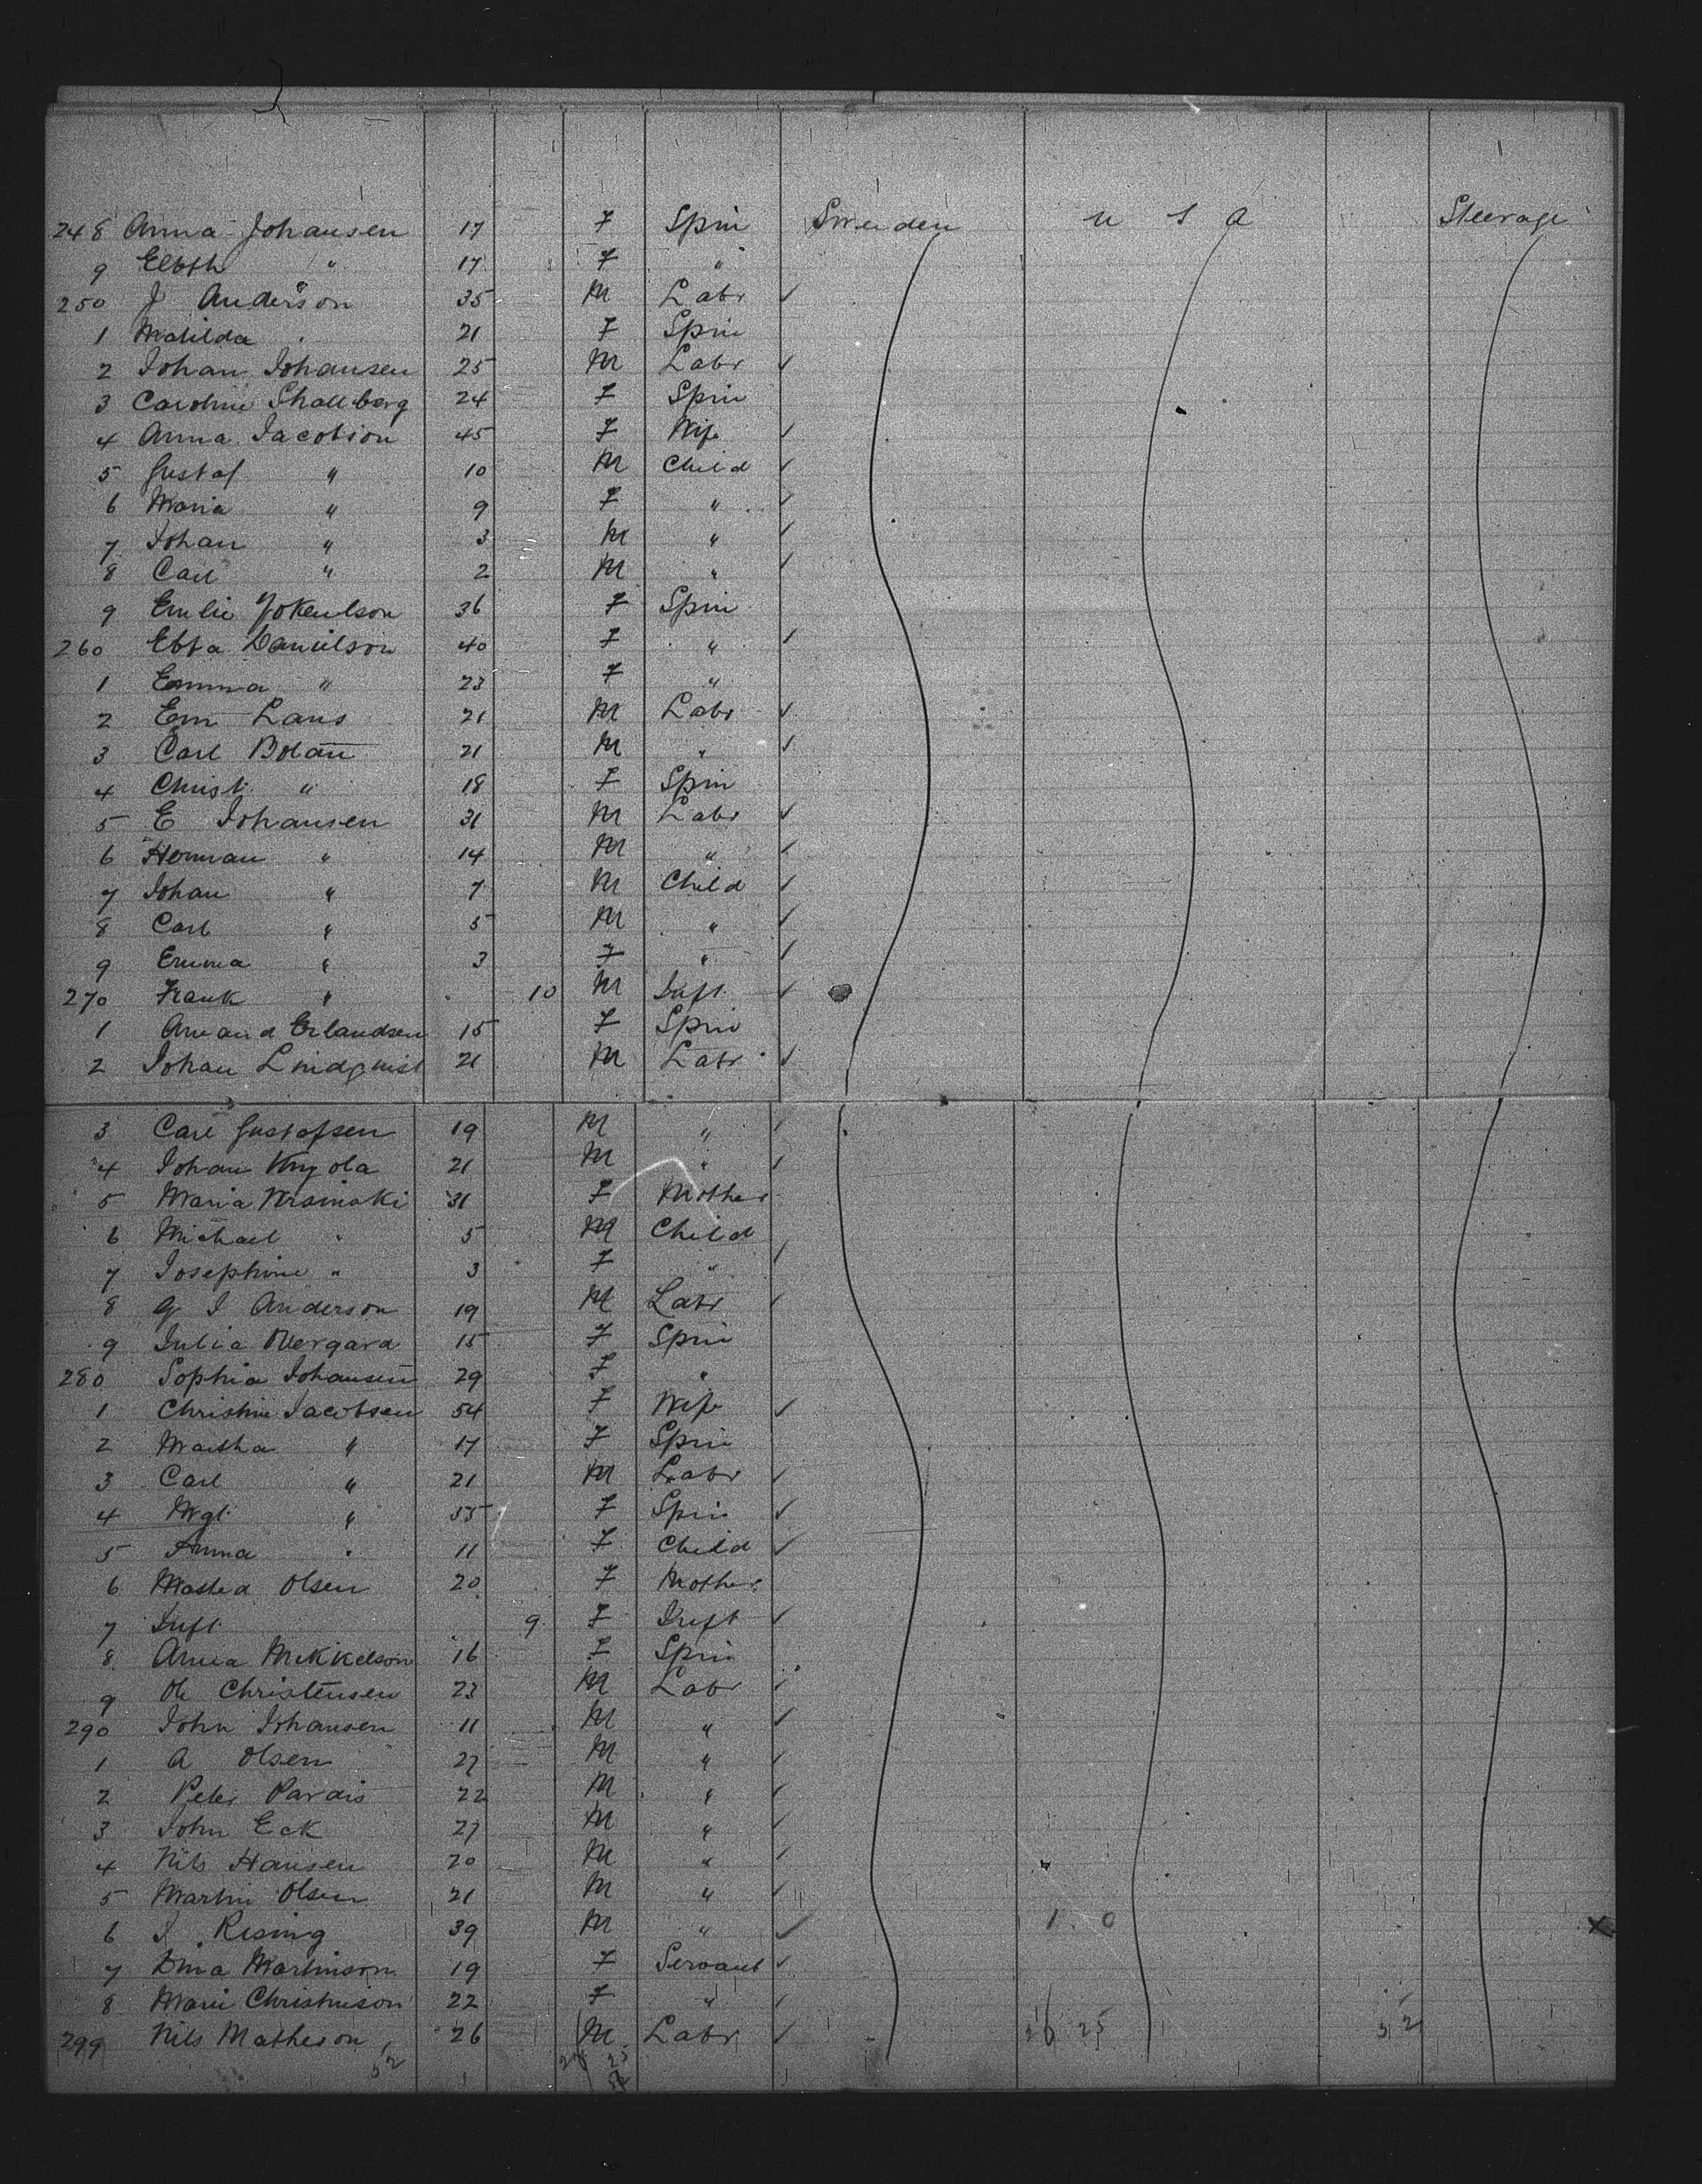 248 Anna Johansen 17 F Spin Sweeden U S A Steerage
9 Elbth " 17 F "
250 J Anderson 35 M Labr ✓
1 Matilda " 21 F Spin
2 Johan Johansen 25 M Labr ✓
3 Caroline 24 F Spin
4 Anna Jacobson 45 F Wife ✓
5 Gustaf " 10 M Child ✓
6 Maria " 9 F " ✓
7 Johan " 3 M " ✓
8 Carl " 2 M " ✓
9 Emlie 36 F Spin
260 Ebba Danielson 40 F " ✓
1 Emma " 23 F "
2 Em Lans 21 M Labr ✓
3 Carl Bolan 21 M " ✓
4 Christ " 18 F Spin
5 E Johansen 31 M Labr ✓
6 Herman " 14 M " ✓
7 Johan " 7 M Child ✓
8 Carl " 5 M " ✓
9 Emma " 3 F " ✓
270 Frank " 10 M Inft ✓
1 Amand Erlandsen 15 F Spin
2 Johan Lindquist 21 M Labr ✓
3 Carl Gustafsen 19 M " ✓
4 Johan 21 M " ✓
5 Maria 31 F Mother
6 Michael " 5 M Child
7 Josephine " 3 F " ✓
8 G J Anderson 19 M Labr ✓
9 Julia Overgard 15 F Spin
280 Sophia Johansen 29 F "
1 Christine Jacobsen 54 F Wife ✓
2 Martha " 17 F Spin
3 Carl " 21 M Labr ✓
4 Mgt " 35 F Spin ✓
5 Anna " 11 F Child ✓
6 Olsen 20 F Mother
7 Inft 9 F Inft ✓
8 Anna Mikkelson 16 F Spin
9 Ole Christensen 23 M Labr ✓
290 John Johansen 11 M " ✓
1 A Olsen 27 M " ✓
2 Peter Pardis 22 M " ✓
3 John Eck 27 M " ✓
4 Nils Hansen 20 M " ✓
5 Martin Olsen 21 M " ✓
6 J Rising 39 M " ✓ 1 0 X
7 Dina Martinson 19 F Servant ✓
8 Marie Christinson 22 F " ✓
299 Nils Matheson 26 M Labr ✓ 26 25 52
52